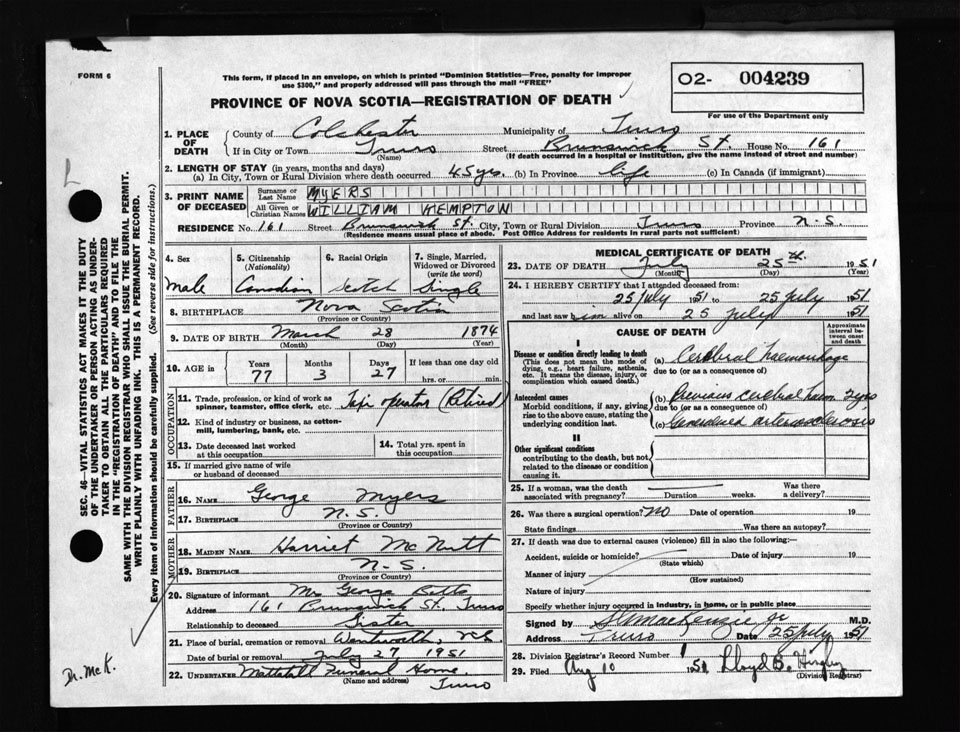 FORM 6
This form, if placed in an envelope, on which is printed "Dominion Statistics—Free, penalty for improper
use $300," and properly addressed will pass through the mail "FREE"
O2- 004239
For use of the Department only
PROVINCE OF NOVA SCOTIA—REGISTRATION OF DEATH
1. PLACE OF DEATH { County of Colchester Municipality of Truro
If in City or Town Truro (Name) Street Brunswick St. House No. 161
(If death occurred in a hospital or institution, give the name instead of street and number)
2. LENGTH OF STAY (in years, months and days)
(a) In City, Town or Rural Division where death occurred 45 yrs. (b) In Province life (c) In Canada (if immigrant)
3. PRINT NAME OF DECEASED { Surname or Last Name MYERS
All Given or Christian Names WILLIAM KEMPTON
RESIDENCE No. 161 Street Brunswick St. City, Town or Rural Division Truro Province N.S.
(Residence means usual place of abode. Post Office Address for residents in rural parts not sufficient)
4. Sex 5. Citizenship (Nationality) 6. Racial Origin 7. Single, Married, Widowed or Divorced (write the word)
Male Canadian Scotch Single
8. BIRTHPLACE Nova Scotia
(Province or Country)
9. DATE OF BIRTH March 28 1874
(Month) (Day) (Year)
10. AGE { Years Months Days If less than one day old
77 3 27 hrs. or min.
OCCUPATION
11. Trade, profession, or kind of work as
spinner, teamster, office clerk, etc. Taxi operator (Retired)
12. Kind of industry or business, as cotton-
mill, lumbering, bank, etc.
13. Date deceased last worked
at this occupation
14. Total yrs. spent in
this occupation
15. If married give name of wife
or husband of deceased
FATHER
16. NAME George Myers
17. BIRTHPLACE N.S.
(Province or Country)
MOTHER
18. MAIDEN NAME Harriet McNutt
19. BIRTHPLACE N.S.
(Province or Country)
20. Signature of informant Mrs George
Address 161 Brunswick St., Truro
Relationship to deceased Sister
21. Place of burial, cremation or removal Wentworth, N.S.
Date of burial or removal July 27 1951
22. UNDERTAKER Mattatall Funeral Home
(Name and address)
Truro
MEDICAL CERTIFICATE OF DEATH
23. DATE OF DEATH July 25th. 1951
(Month) (Day) (Year)
24. I HEREBY CERTIFY that I attended deceased from:
25 July 1951 to 25 July 1951
and last saw him alive on 25 July 1951
CAUSE OF DEATH
Approximate interval between onset and death
I
Disease or condition directly leading to death
(This does not mean the mode of
dying, e.g., heart failure, asthenia,
etc. It means the disease, injury, or
complication which caused death.)
(a) Cerebral haemorrhage
due to (or as a consequence of)
Antecedent causes
Morbid conditions, if any, giving
rise to the above cause, stating the
underlying condition last.
(b) Previous cerebral haem 2 yrs
due to (or as a consequence of)
(c) Generalized arteriosclerosis
II
Other significant conditions
contributing to the death, but not
related to the disease or condition
causing it.
25. If a woman, was the death
associated with pregnancy? Duration weeks. Was there
a delivery?
26. Was there a surgical operation? NO Date of operation 19
State findings Was there an autopsy?
27. If death was due to external causes (violence) fill in also the following:—
Accident, suicide or homicide? Date of injury 19
(State which)
Manner of injury
(How sustained)
Nature of injury
Specify whether injury occurred in industry, in home, or in public place
Signed by MacKenzie Jr M.D.
Address Truro Date 25 July 1951
28. Division Registrar's Record Number
29. Filed Aug 10 1951 Lloyd B.
(Division Registrar)
SEC. 46—VITAL STATISTICS ACT MAKES IT THE DUTY
OF THE UNDERTAKER OR PERSON ACTING AS UNDER-
TAKER TO OBTAIN ALL THE PARTICULARS REQUIRED
IN THE "REGISTRATION OF DEATH" AND TO FILE THE
SAME WITH THE DIVISION REGISTRAR WHO SHALL ISSUE THE BURIAL PERMIT.
WRITE PLAINLY WITH UNFADING INK. THIS IS A PERMANENT RECORD.
Every item of information should be carefully supplied. (See reverse side for instructions.)
Dr. McK.